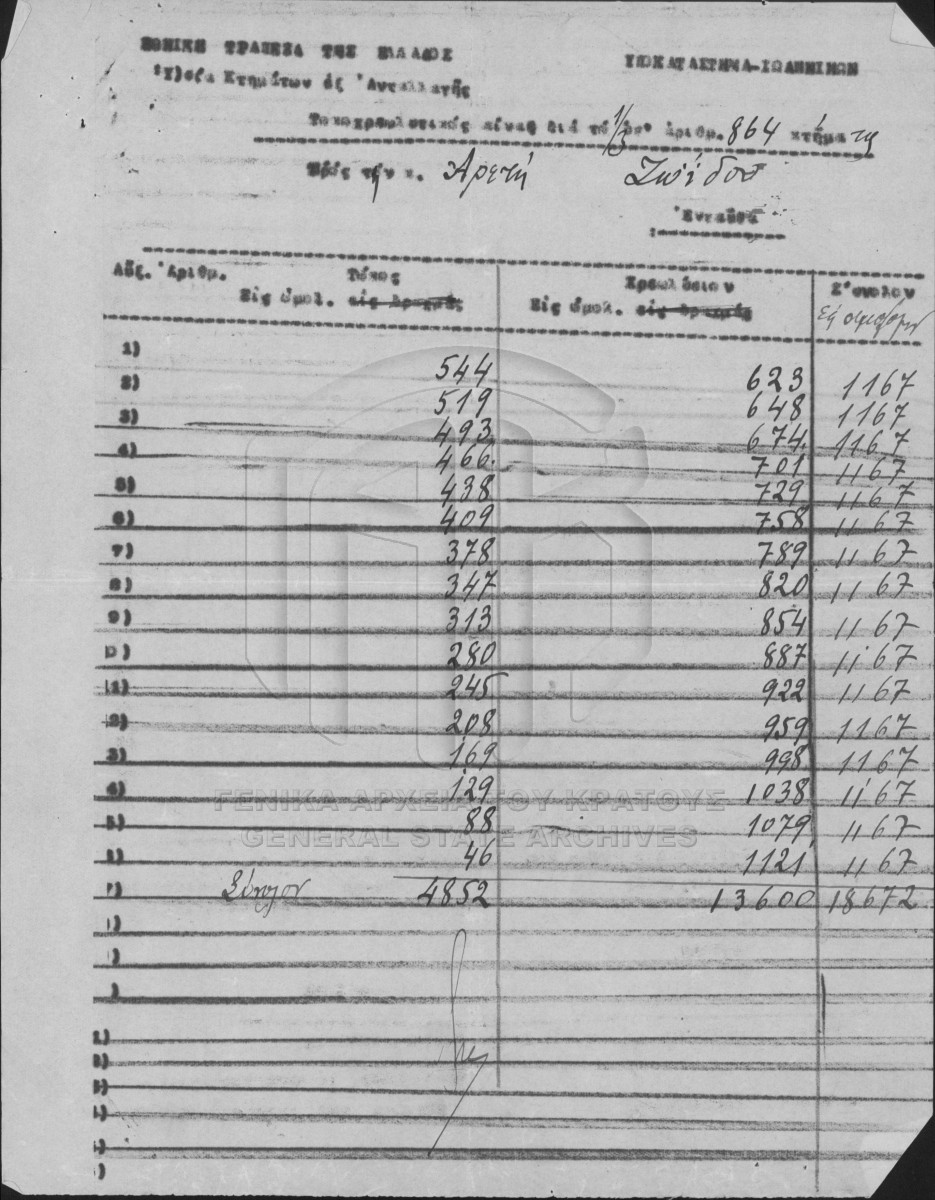 ΕΘΝΙΚΗ ΤΡΑΠΕΖΑ ΤΗΣ ΕΛΛΑΔΟΣ
ΥΠΟΚΑΤΑΣΤΗΜΑ-ΙΩΑΝΝΙΝΩΝ
Κτημάτων ἐξ Ἀνταλλαγῆς
Τοκοχρεωλυτικός πίναξ διά τό 1/2 ὑπ' ἀριθμ. 864 κτήμα
Πρός τήν κ. Ἀρετή Ζωίδου
Ἐνταῦθα
Αὔξ. Ἀριθμ. Τόκος Χρεωλύσιον Σύνολον
Εἰς ὁμολ. εἰς δραχμάς Εἰς ὁμολ. εἰς δραχμάς
1) 544 623 1167
2) 519 648 1167
3) 493 674 1167
4) 466 701 1167
5) 438 729 1167
6) 409 758 1167
7) 378 789 1167
8) 347 820 1167
9) 313 854 1167
0) 280 887 1167
1) 245 922 1167
2) 208 959 1167
3) 169 998 1167
4) 129 1038 1167
5) 88 1079 1167
6) 46 1121 1167
7) Σύνολον 4852 13600 18672
)
)
)
1)
)
)
)
)
)
ΓΕΝΙΚΑ ΑΡΧΕΙΑ ΤΟΥ ΚΡΑΤΟΥΣ
GENERAL STATE ARCHIVES